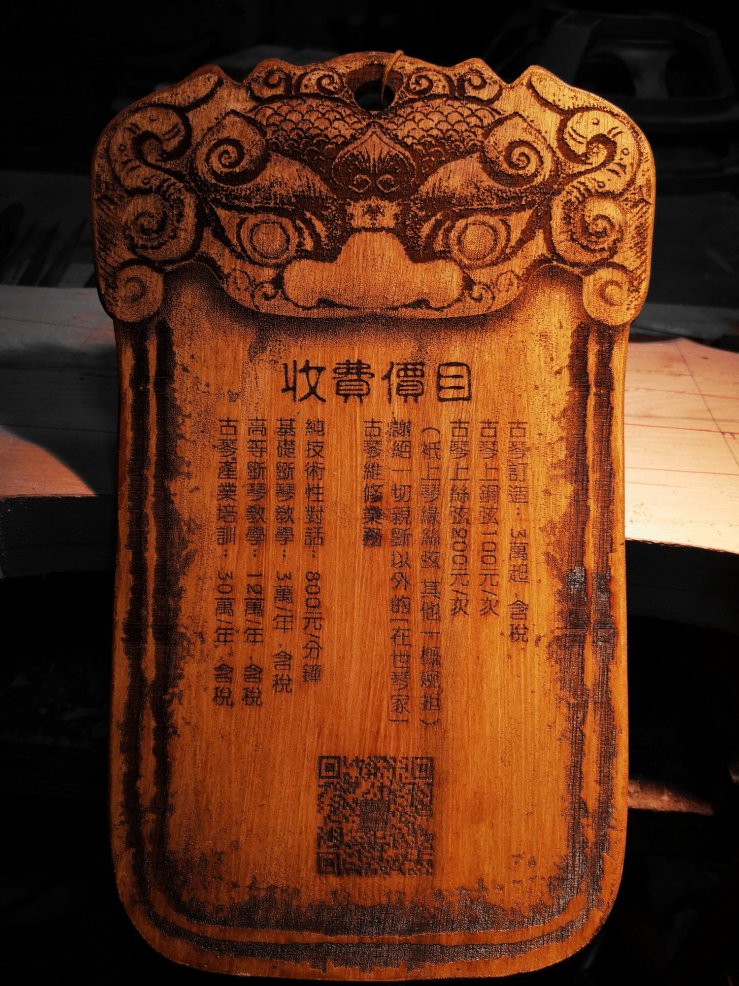 收費價目
古琴訂造：3萬起 含稅
古琴上鋼弦100元/次
古琴上絲弦200元/次
（紙上琴緣絲弦 其他一概婉拒）
謝絕一切親斲以外的「在世琴家」
古琴維修業務
純技術性對話：800元/分鐘
基礎斲琴教學：3萬/年 含稅
高等斲琴教學：12萬/年 含稅
古琴產業培訓：30萬/年 含稅